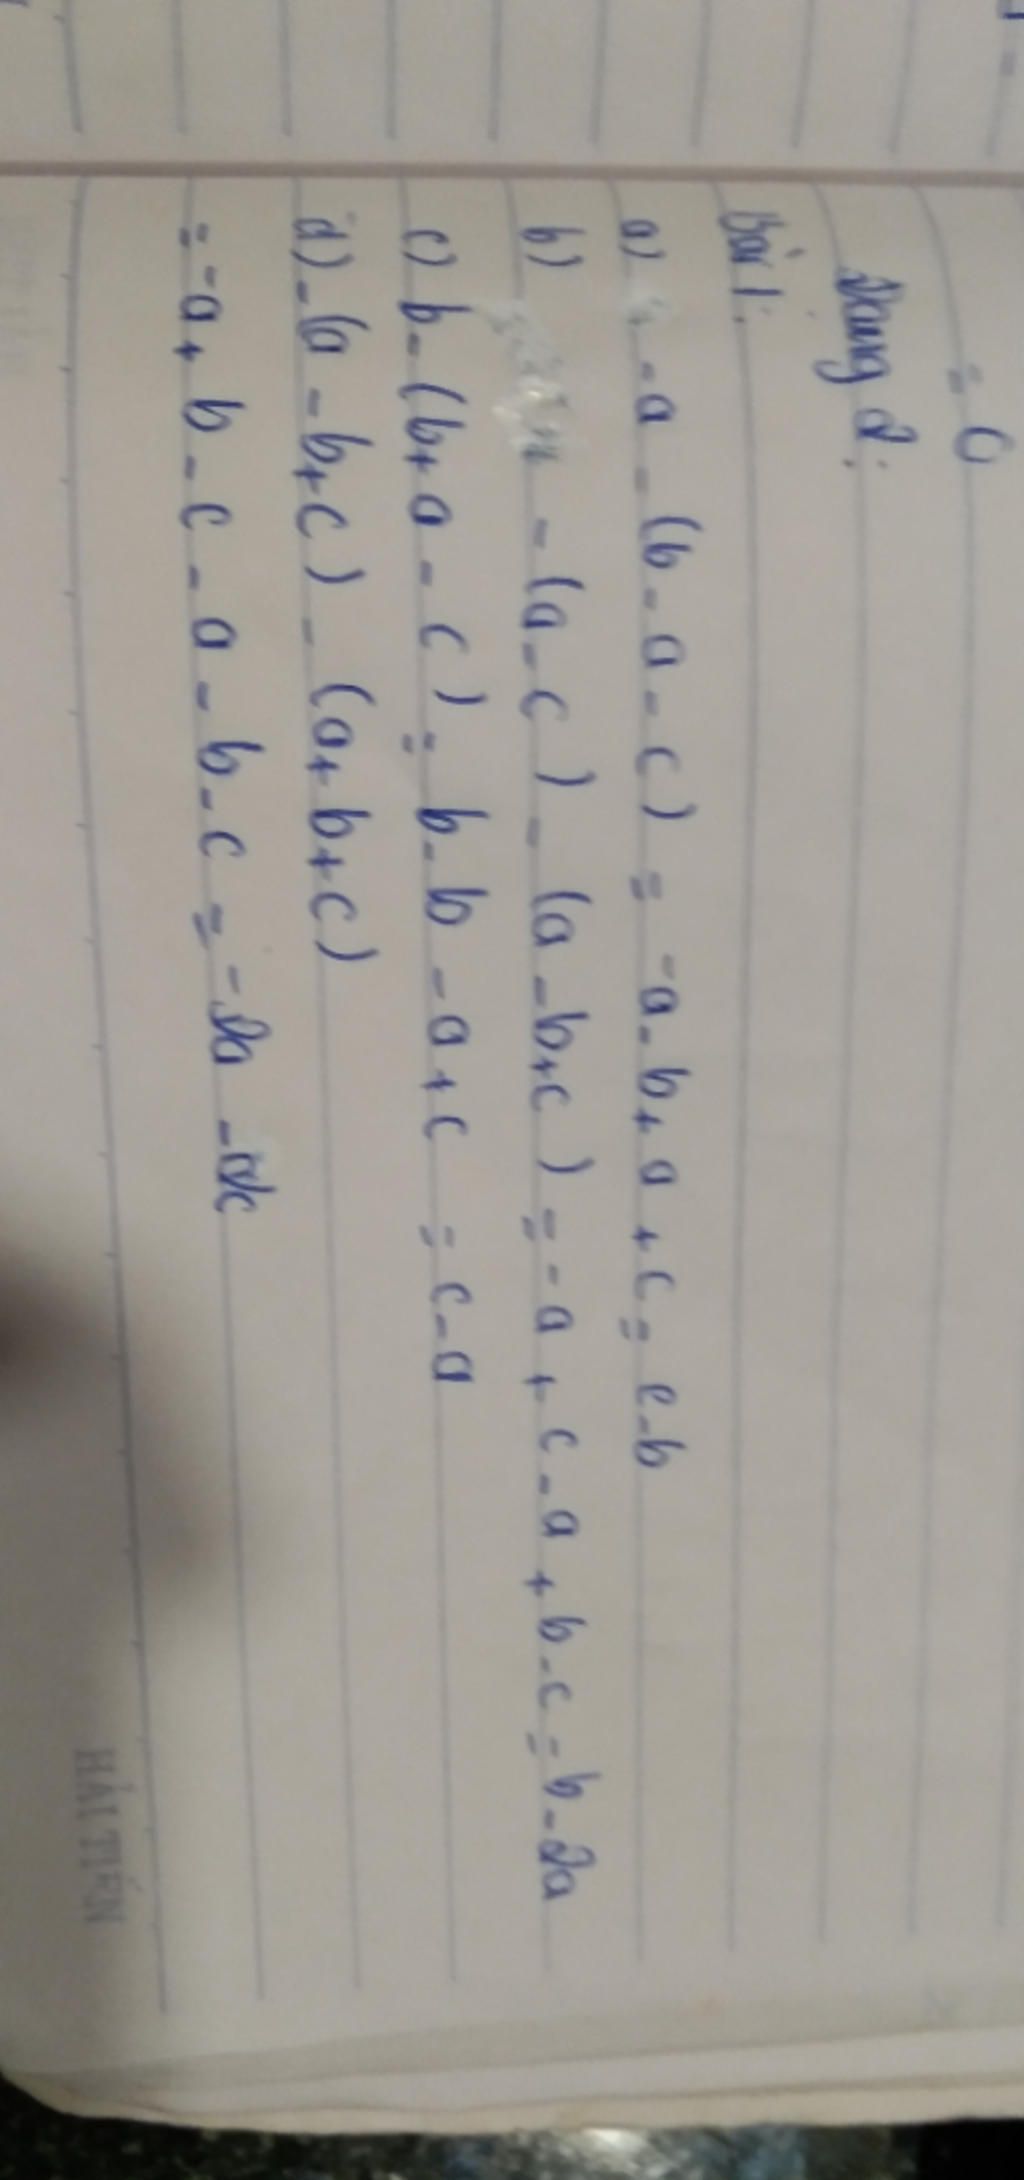 = 0
Dạng 2:
Bài 1:
a) -a - (b - a - c) = -a - b + a + c = c - b
b) - (a - c) - (a - b + c) = -a + c - a + b - c = b - 2a
c) b - (b + a - c) = b - b - a + c = c - a
d) -(a - b + c) - (a + b + c)
= -a + b - c - a - b - c = -2a - 2c
HẢI TIẾN